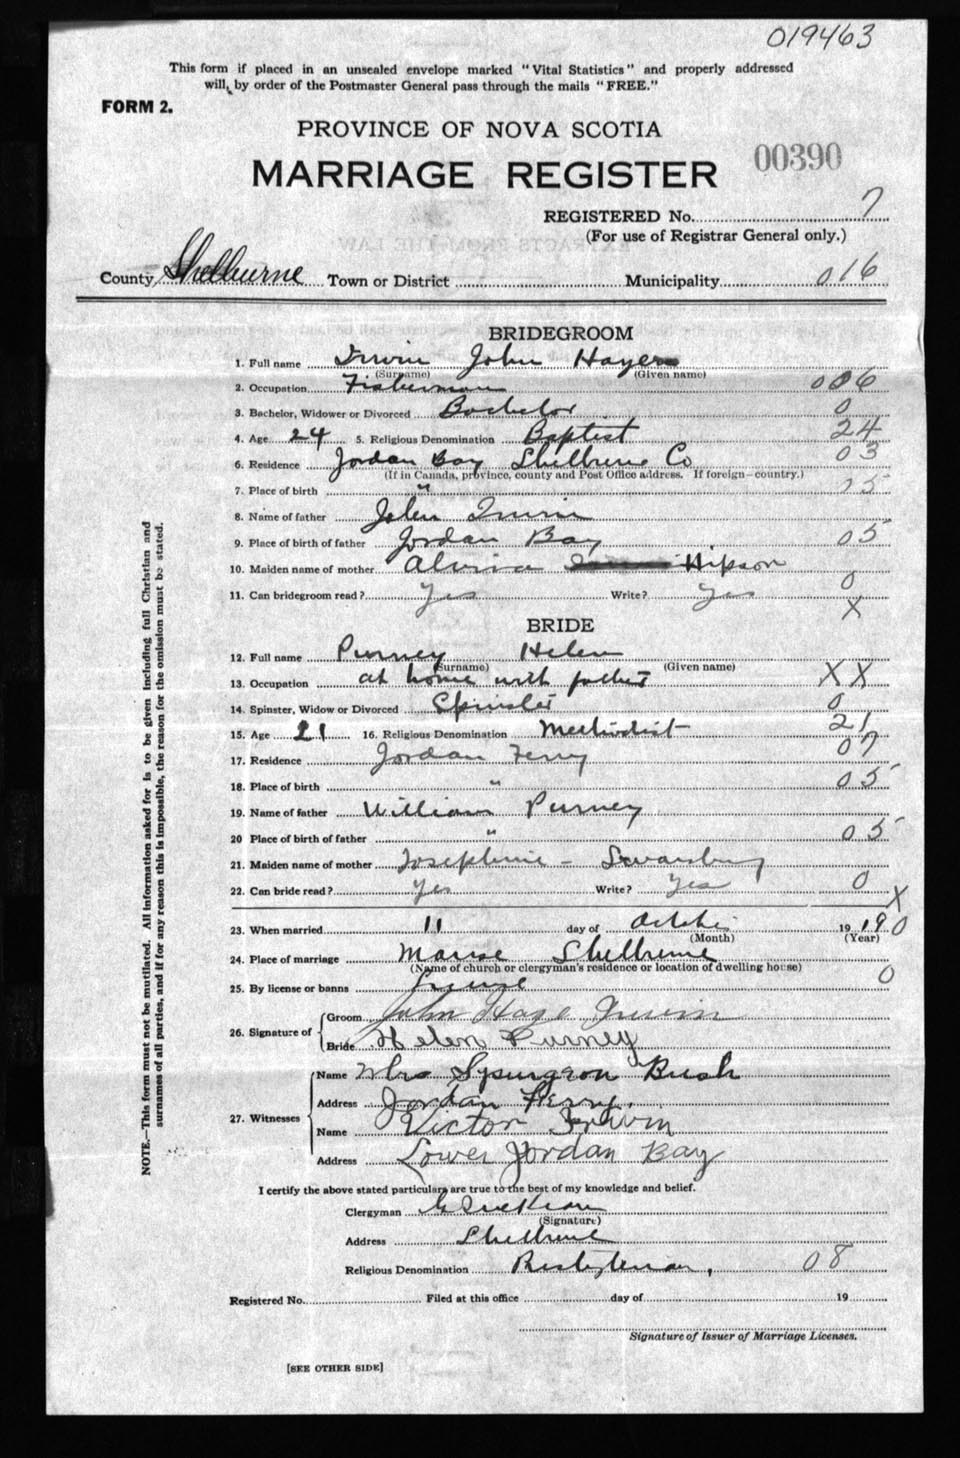 019463
This form if placed in an unsealed envelope marked "Vital Statistics" and properly addressed
will, by order of the Postmaster General pass through the mails "FREE."
FORM 2.
PROVINCE OF NOVA SCOTIA
MARRIAGE REGISTER 00390
REGISTERED No. 7
(For use of Registrar General only.)
County Shelburne Town or District Municipality 016
BRIDEGROOM
1. Full name Irwin John Hayes
(Surname) (Given name)
2. Occupation Fisherman 006
3. Bachelor, Widower or Divorced Bachelor 0
4. Age 24 5. Religious Denomination Baptist 24
6. Residence Jordan Bay Shelburne Co 03
(If in Canada, province, county and Post Office address. If foreign—country.)
7. Place of birth " 15
8. Name of father John Irwin
9. Place of birth of father Jordan Bay 05
10. Maiden name of mother Alvina Hipson
11. Can bridegroom read? Yes Write? Yes 0
X
BRIDE
12. Full name Purney Helen
(Surname) (Given name)
13. Occupation at home with father XX
14. Spinster, Widow or Divorced Spinster 0
15. Age 21 16. Religious Denomination Methodist 21
17. Residence Jordan Ferry 07
18. Place of birth " 05
19. Name of father William Purney
20 Place of birth of father " 05
21. Maiden name of mother Josephine -
22. Can bride read? Yes Write? Yes 0
X
23. When married 11 day of October 19 19 0
(Month) (Year)
24. Place of marriage Manse Shelburne
(Name of church or clergyman's residence or location of dwelling house)
25. By license or banns License 0
26. Signature of Groom John Haze Irwin
Bride Helen Purney
27. Witnesses Name Mrs Spurgeon Bush
Address Jordan Ferry.
Name Victor Irwin
Address Lower Jordan Bay
I certify the above stated particulars are true to the best of my knowledge and belief.
Clergyman
(Signature)
Address Shelburne
Religious Denomination Presbyterian, 08
Registered No. Filed at this office day of 19
Signature of Issuer of Marriage Licenses.
[SEE OTHER SIDE]
NOTE.—This form must not be mutilated. All information asked for is to be given including full Christian and
surnames of all parties, and if for any reason this is impossible, the reason for the omission must be stated.